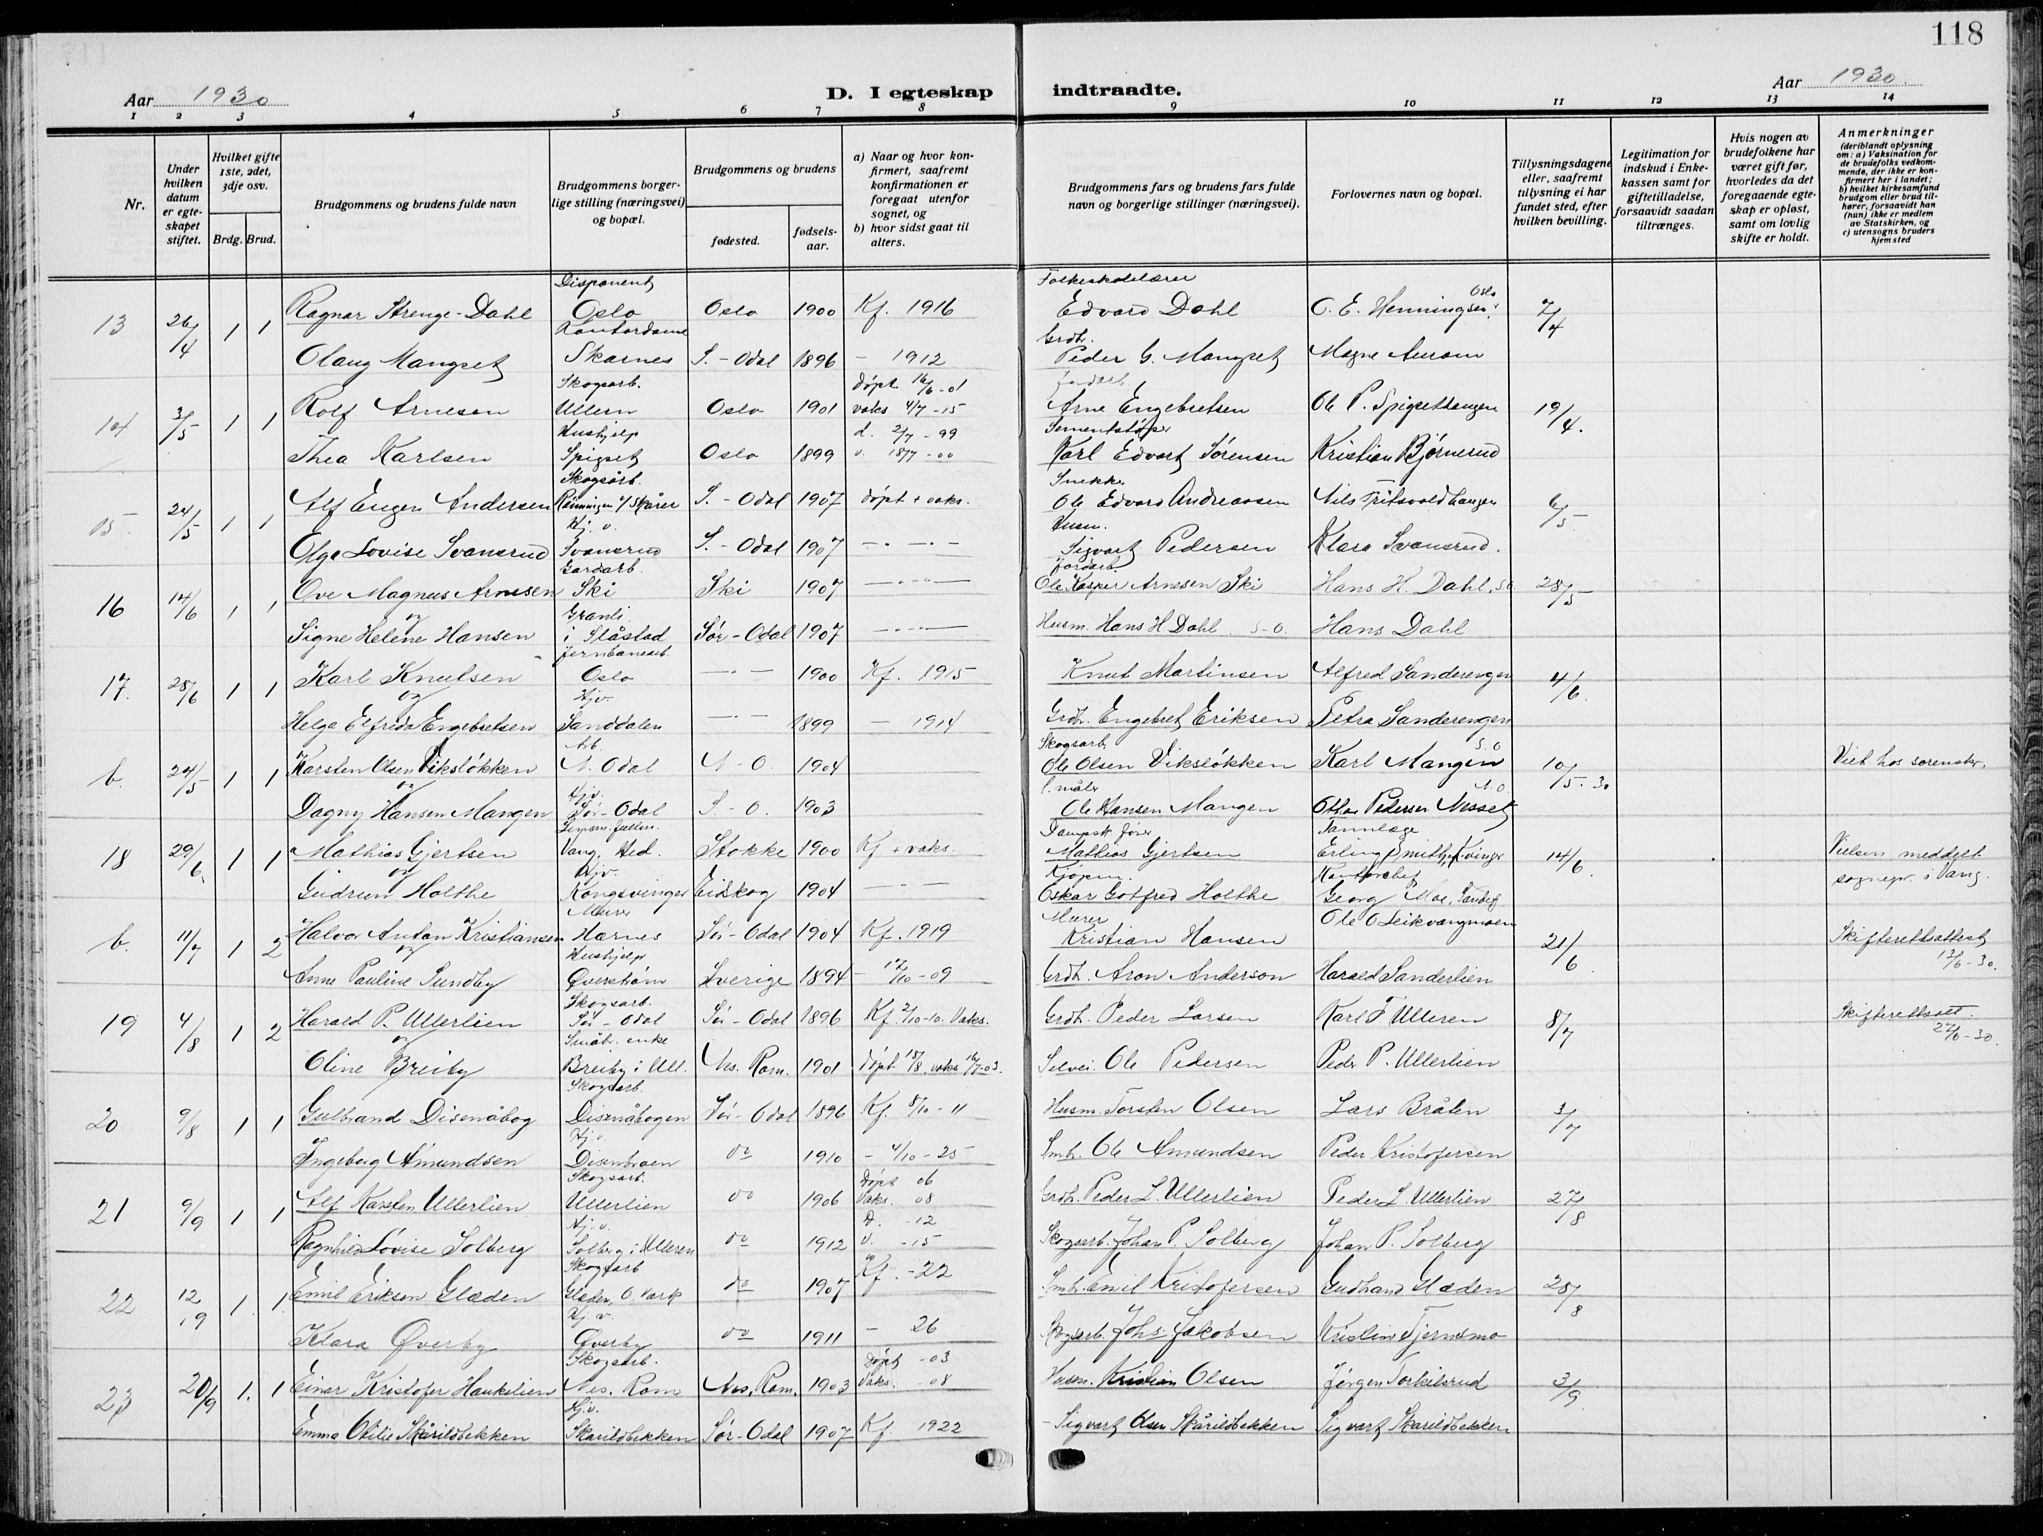 118
Aar 1930 D. I egteskap indtraadte. Aar 1930
1 2 3 4 5 6 7 8 9 10 11 12 13 14
Nr.
Under hvilken datum er egteskapet stiftet.
Hvilket gifte 1ste, 2det, 3dje osv.
Brdg. Brud.
Brudgommens og brudens fulde navn
Brudgommens borgerlige stilling (næringsvei) og bopæl.
Brudgommens og brudens
fødested. fødselsaar.
a) Naar og hvor konfirmert, saafremt konfirmationen er foregaat utenfor sognet, og
b) hvor sidst gaat til alters.
Brudgommens fars og brudens fars fulde navn og borgerlige stillinger (næringsvei).
Forlovernes navn og bopæl.
Tillysningsdagene eller, saafremt tillysning ei har fundet sted, efter hvilken bevilling.
Legitimation for indskud i Enkekassen samt for giftetilladelse, forsaavidt saadan tiltrænges.
Hvis nogen av brudefolkene har været gift før, hvorledes da det foregaaende egteskap er opløst, samt om lovlig skifte er holdt.
Anmerkninger (deriblandt oplysning om: a) Vaksination for de brudefolks vedkommende, der ikke er konfirmert her i landet; b) hvilket kirkesamfund brudgom eller brud tilhører, forsaavidt han (hun) ikke er medlem av Statskirken, og c) utensogns bruders hjemsted
Disponent Folkeskolelærer
13 26/4 1 1 Ragnar Strenge-Dahl Oslo Oslo 1900 Kf. 1916 Edvard Dahl O. E. Henningsen Oslo 7/4
Kontordame Grdb.
Olaug Mangset Skarnes S.-Odal 1896 - 1912 Peder G. Mangset Magne Aurom
Skogsarb. døpt 16/6-01
14 3/5 1 1 Rolf Arnesen Ullern Oslo 1901 vaks 4/7-15 Arne Engebretsen Ole P. Spigsethaugen 19/4.
Hushjelp d. 2/7-99 Sementstøper
Thea Karlsen Spigset Oslo 1899 v. 18/7-00 Karl Edvart Sørensen Kristian Bjørnerud
Skogsarb. Snekker
15 24/5 1 1 Alf Eugen Andersen Rønningen S.-Odal 1907 døpt + vaks. Ole Edvard Andreassen Nils 6/5
Hj. v. Husm.
Olga Lovise Svansrud Svansrud S.-Odal 1907 Sigvart Pedersen Klara Svansrud.
Gardarb. Jordarb.
16 14/6 1 1 Ove Magnus Arnesen Ski Ski 1907 Ole Kasper Arnesen Ski Hans H. Dahl, S.O. 28/5
og
Signe Helene Hansen i Ståstad Sør-Odal 1907 Husm. Hans H Dahl S-O. Hans Dahl
Jernbanearb.
17. 28/6 1 1 Karl Knutsen Oslo 1900 Kf. 1915 Knut Martinsen Alfred Sanderengen 4/6
og Hjv.
Helga Elfrida Engebretsen Sanddalen 1899 - 1914 Grdb. Engebret Eriksen Petra Sanderengen
Arb. Skogsarb. S.O
b. 24/5 1 1 Karsten Olsen Vikslökken N. Odal N-O. 1904 Ole Olsen Vikslökken Karl Mangen 10/5-30 Viet hos sorenskr.
og Hjv. N.O
Dagny Hansen Mangen Sør-Odal S-O. 1903 Ole Hansen Mangen Otto Pedersen Nisset
Lensm.fullm. Tannlæge
18 29/6. 1 1 Mathias Gjertsen Vang, Hed. Stokke 1900 Kf + vaks. Mathias Gjertsen Erling Smith, Kvinger 14/6 Vielsen meddelt
og Hjv. Kjøpm. Kontorchef
Gudrun Holthe Kongsvinger Eidskog 1904 Oskar Gotfred Holthe Georg Moe, sognepr. i Vang.
Murer Murer
b. 11/7 1 2 Halvor Anton Kristiansen Harnes Sør-Odal 1904 Kf. 1919 Kristian Hansen Ole O Leikvangmoen 21/6 Skifterettsattest
og Hushjelp 13/6-30.
Anne Pauline Sundby Øverstrøm Sverige 1894 - 17/10-09 Grdb. Aron Anderson Harald Sanderlien
Skogsarb.
19 4/8 1 2 Harald P. Ullerlien Sør-Odal Sør-Odal 1896 Kf. 2/10-10. Vaks. Grdb. Peder Larsen Karl F Ulleren 8/7 Skifterettsatt.
og Småbr. enke 27/6-30.
Oline Breiby Breiby i Ull. Nes. Rom. 1901 Døpt 18/8, vaks 16/7-03. Selvei. Ole Pedersen Peder P. Ullerlien
Skogsarb.
20 9/8 1 1 Gulbrand Disenåbog Disenåbogen Sør-Odal 1896 Kf. 8/10-11 Husm. Torsten Olsen Lars Bråten 3/7
Hj. v.
Ingeborg Amundsen Disenbroen do 1910 - 4/10-25 Smb. Ole Amundsen Peder Kristofersen
Skogsarb. Døpt 06
21 9/9 1 1 Alf Karsten Ullerlien Ullerlien do 1906 Vaks. 08 Grdb. Peder L. Ullerlien Peder L. Ullerlien 27/8
Hj. v. D. -12
Ragnhild Lovise Solberg Solberg i Ulleren do 1912 v. -15 Skogsarb. Johan P. Solberg Johan P. Solberg
Skogsarb
22 12/9 1. 1. Emil Eriksen Glæden Glæden, O. Vark do 1907 Kf. -22 Smb. Emil Kristofersen Gudbrand Glæden 28/8
Hj. v.
Klara Øverby Øverby do 1911 - 26 Skogsarb. Johs. Jakobsen Kristian Tjernsmo
Skogsarb. Døpt -03
23 20/9 1. 1 Einar Kristofer Haukelien Nes. Rom Nes, Rom. 1903 Vaks. -08 Husm. Kristian Olsen Jørgen Torkilsrud 3/9
Hj.v.
Emma Otilie Skårildbekken Skarildbekken Sør-Odal 1907 Kf. 1922 - Sigvart Olsen Skårildbekken Sigvart Skarildbekken